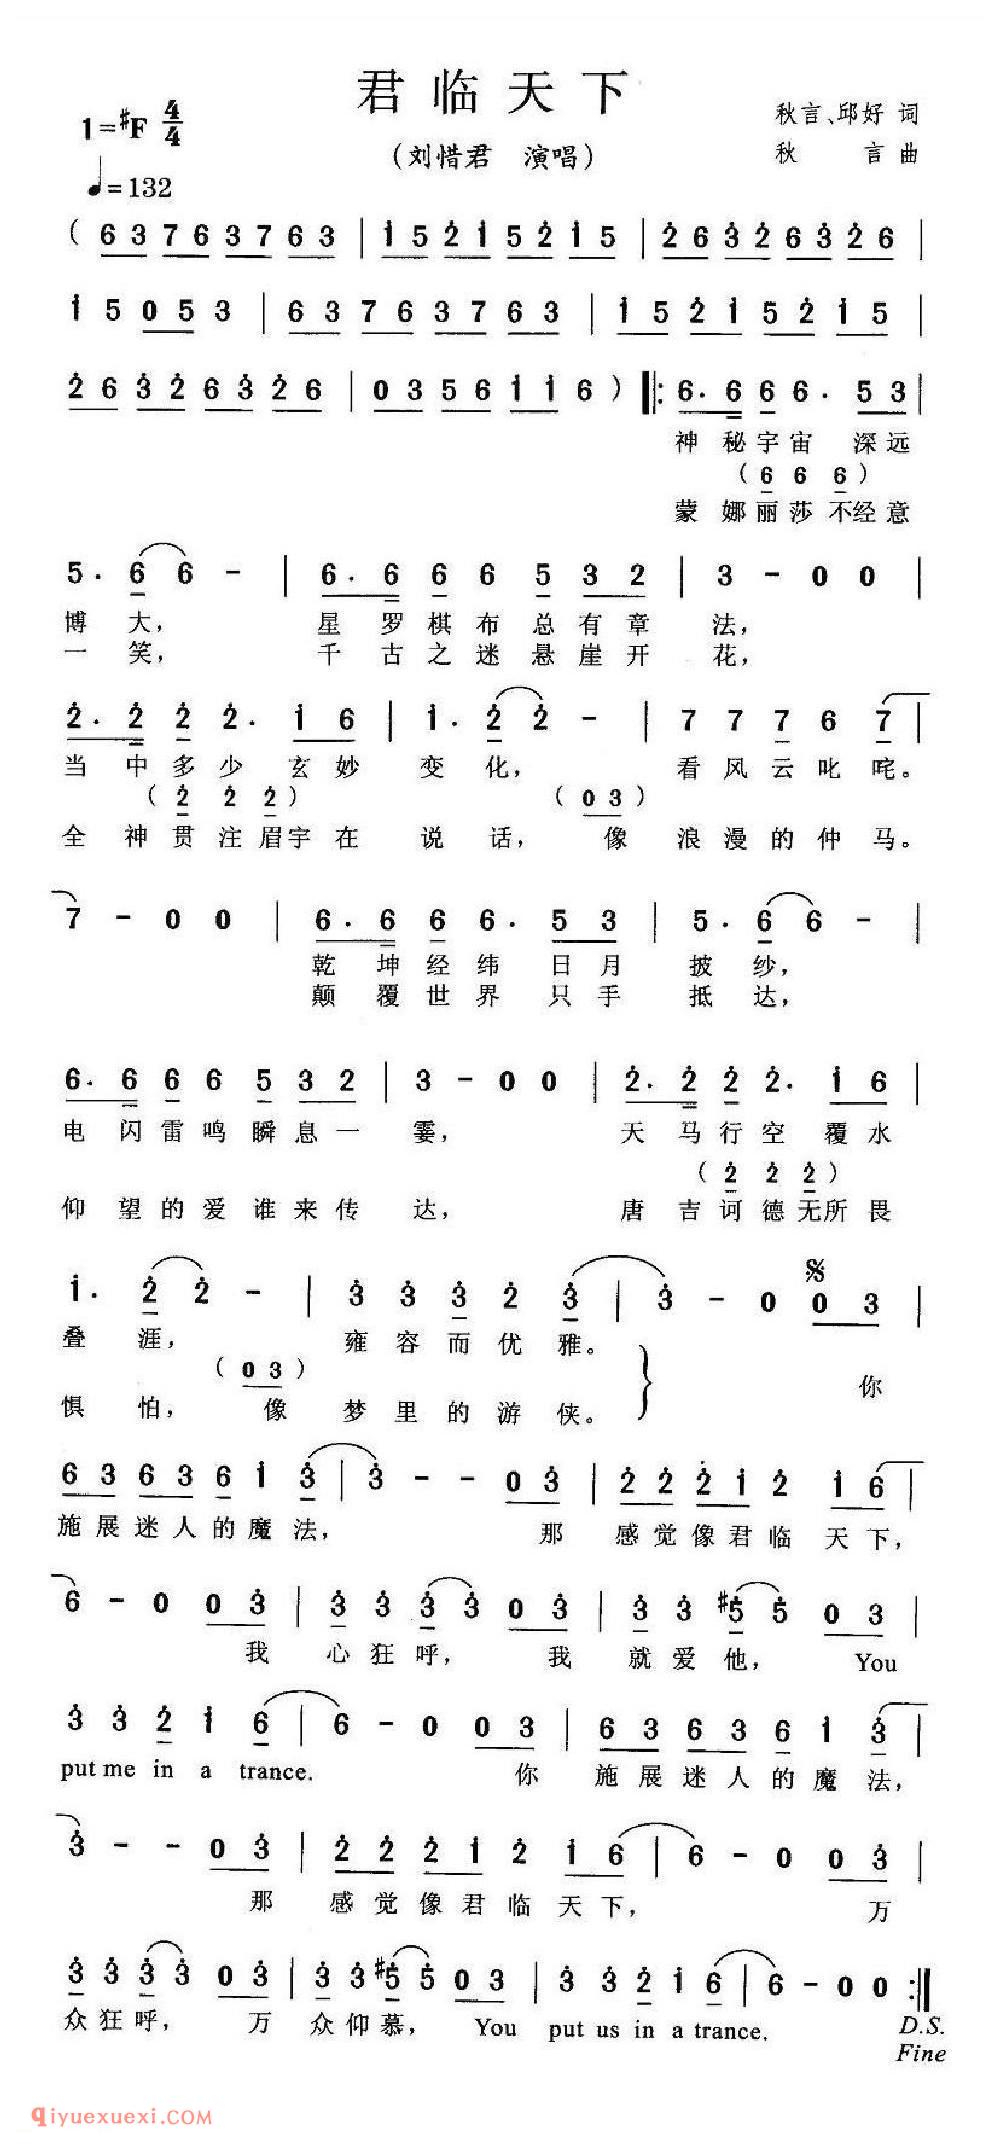 君临天下
1=♯F 4/4
秋言、邱好 词
(刘惜君 演唱)
秋 言 曲
♩=132
( 6 3 7 6 3 7 6 3 | 1 5 2 1 5 2 1 5 | 2 6 3 2 6 3 2 6 |
1 5 0 5 3 | 6 3 7 6 3 7 6 3 | 1 5 2 1 5 2 1 5 |
2 6 3 2 6 3 2 6 | 0 3 5 6 1 1 6 ) |: 6. 6 6 6. 5 3 |
神 秘 宇 宙 深 远
( 6 6 6 )
蒙 娜 丽 莎 不 经 意
5. 6 6 - | 6. 6 6 6 5 3 2 | 3 - 0 0 |
博 大, 星 罗 棋 布 总 有 章 法,
一 笑, 千 古 之 迷 悬 崖 开 花,
2. 2 2 2. 1 6 | 1. 2 2 - | 7 7 7 6 7 |
当 中 多 少 玄 妙 变 化, 看 风 云 叱 咤。
( 2 2 2 ) ( 0 3 )
全 神 贯 注 眉 宇 在 说 话, 像 浪 漫 的 仲 马。
7 - 0 0 | 6. 6 6 6. 5 3 | 5. 6 6 - |
乾 坤 经 纬 日 月 披 纱,
颠 覆 世 界 只 手 抵 达,
6. 6 6 6 5 3 2 | 3 - 0 0 | 2. 2 2 2. 1 6 |
电 闪 雷 鸣 瞬 息 一 霎, 天 马 行 空 覆 水
( 2 2 2 )
仰 望 的 爱 谁 来 传 达, 唐 吉 诃 德 无 所 畏
1. 2 2 - | 3 3 3 2 3 | 3 - 0 0 3 |
叠 涯, 雍 容 而 优 雅。
( 0 3 ) 你
惧 怕, 像 梦 里 的 游 侠。
6 3 6 3 6 1 3 | 3 - - 0 3 | 2 2 2 1 2 1 6 |
施 展 迷 人 的 魔 法, 那 感 觉 像 君 临 天 下,
6 - 0 0 3 | 3 3 3 3 0 3 | 3 3 ♯5 5 0 3 |
我 心 狂 呼, 我 就 爱 他, You
3 3 2 1 6 | 6 - 0 0 3 | 6 3 6 3 6 1 3 |
put me in a trance. 你 施 展 迷 人 的 魔 法,
3 - - 0 3 | 2 2 2 1 2 1 6 | 6 - 0 0 3 |
那 感 觉 像 君 临 天 下, 万
3 3 3 3 0 3 | 3 3 ♯5 5 0 3 | 3 3 2 1 6 | 6 - 0 0 :|
众 狂 呼, 万 众 仰 慕, You put us in a trance. D.S.
Fine
qiyuexuexi.COM